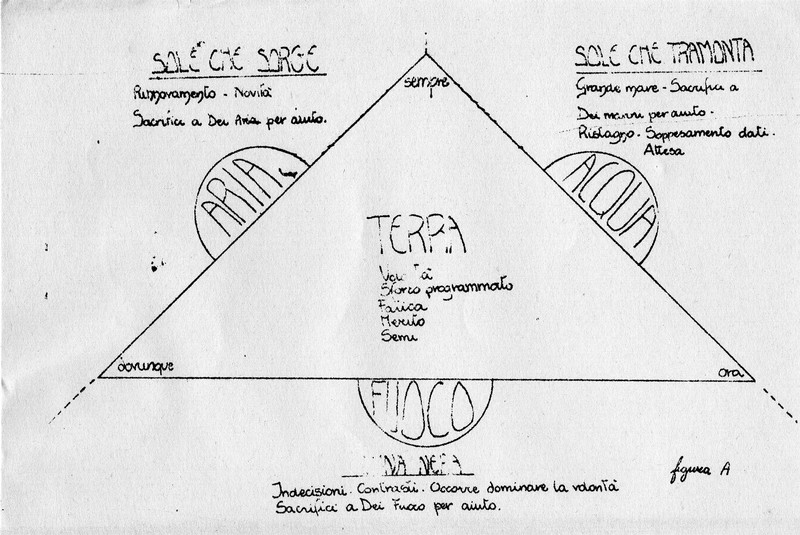 SOLE CHE SORGE
Rinnovamento - Novità
Sacrifici a Dei Aria per aiuto.
SOLE CHE TRAMONTA
Grande mare - Sacrifici a
Dei marini per aiuto -
Ristagno. Soppesamento dati.
Attesa
sempre
ARIA
ACQUA
TERRA
Sforzo programmato
Fatica
Merito
Semi
dovunque
ora
FUOCO
LUNA NERA
Indecisioni. Contrasti. Occorre dominare la volontà
Sacrifici a Dei Fuoco per aiuto.
figura A